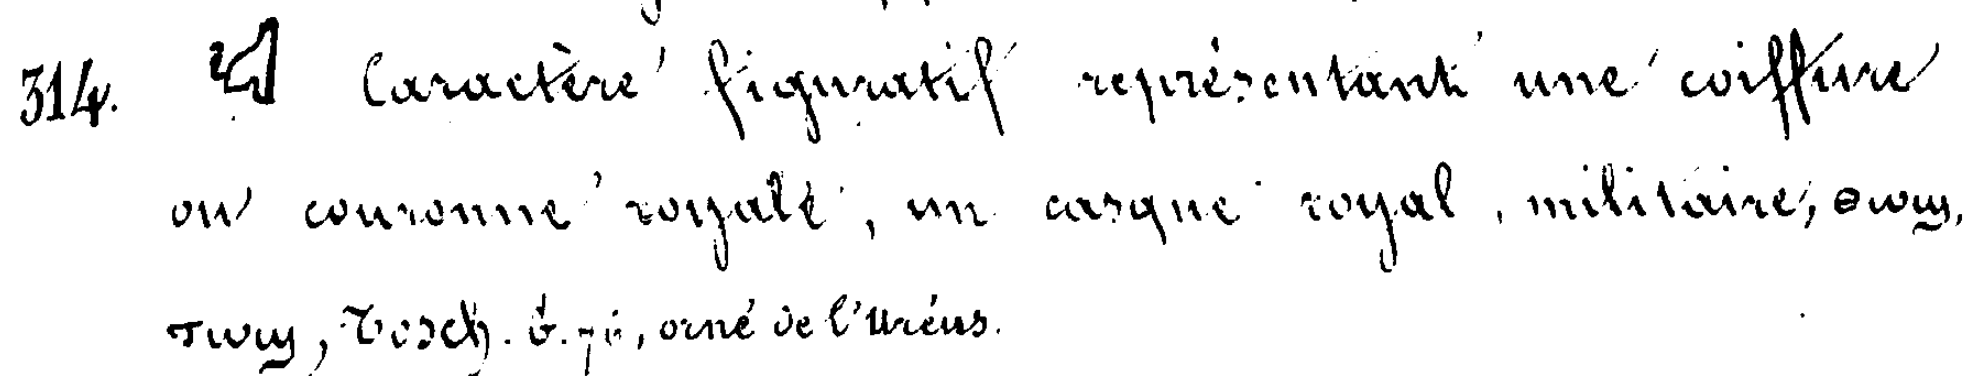 314. Caractère figuratif représentant une coiffure
ou couronne royale, un casque royal, militaire, ⲑⲱϣ,
ⲧⲱϣ, Tosch. orné de l'Uréus.